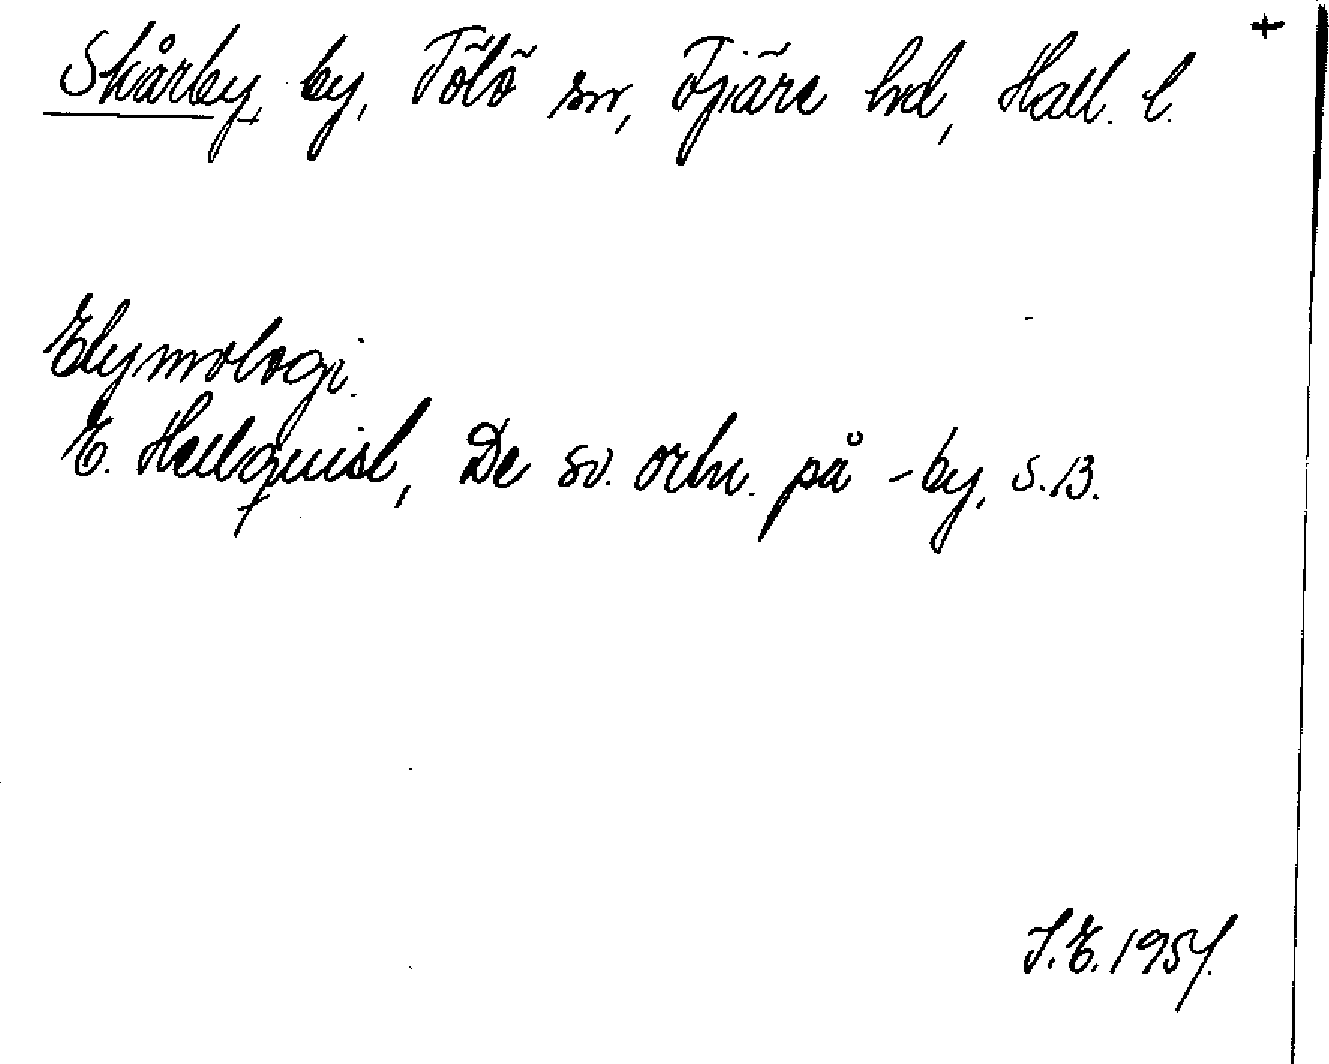 +
Skårby, by, Tölö sn, Fjäre hd, Hall. l.
Etymologi.
E. Hellquist, De sv. ortn. på -by, s. 13.
S. E. 1954.